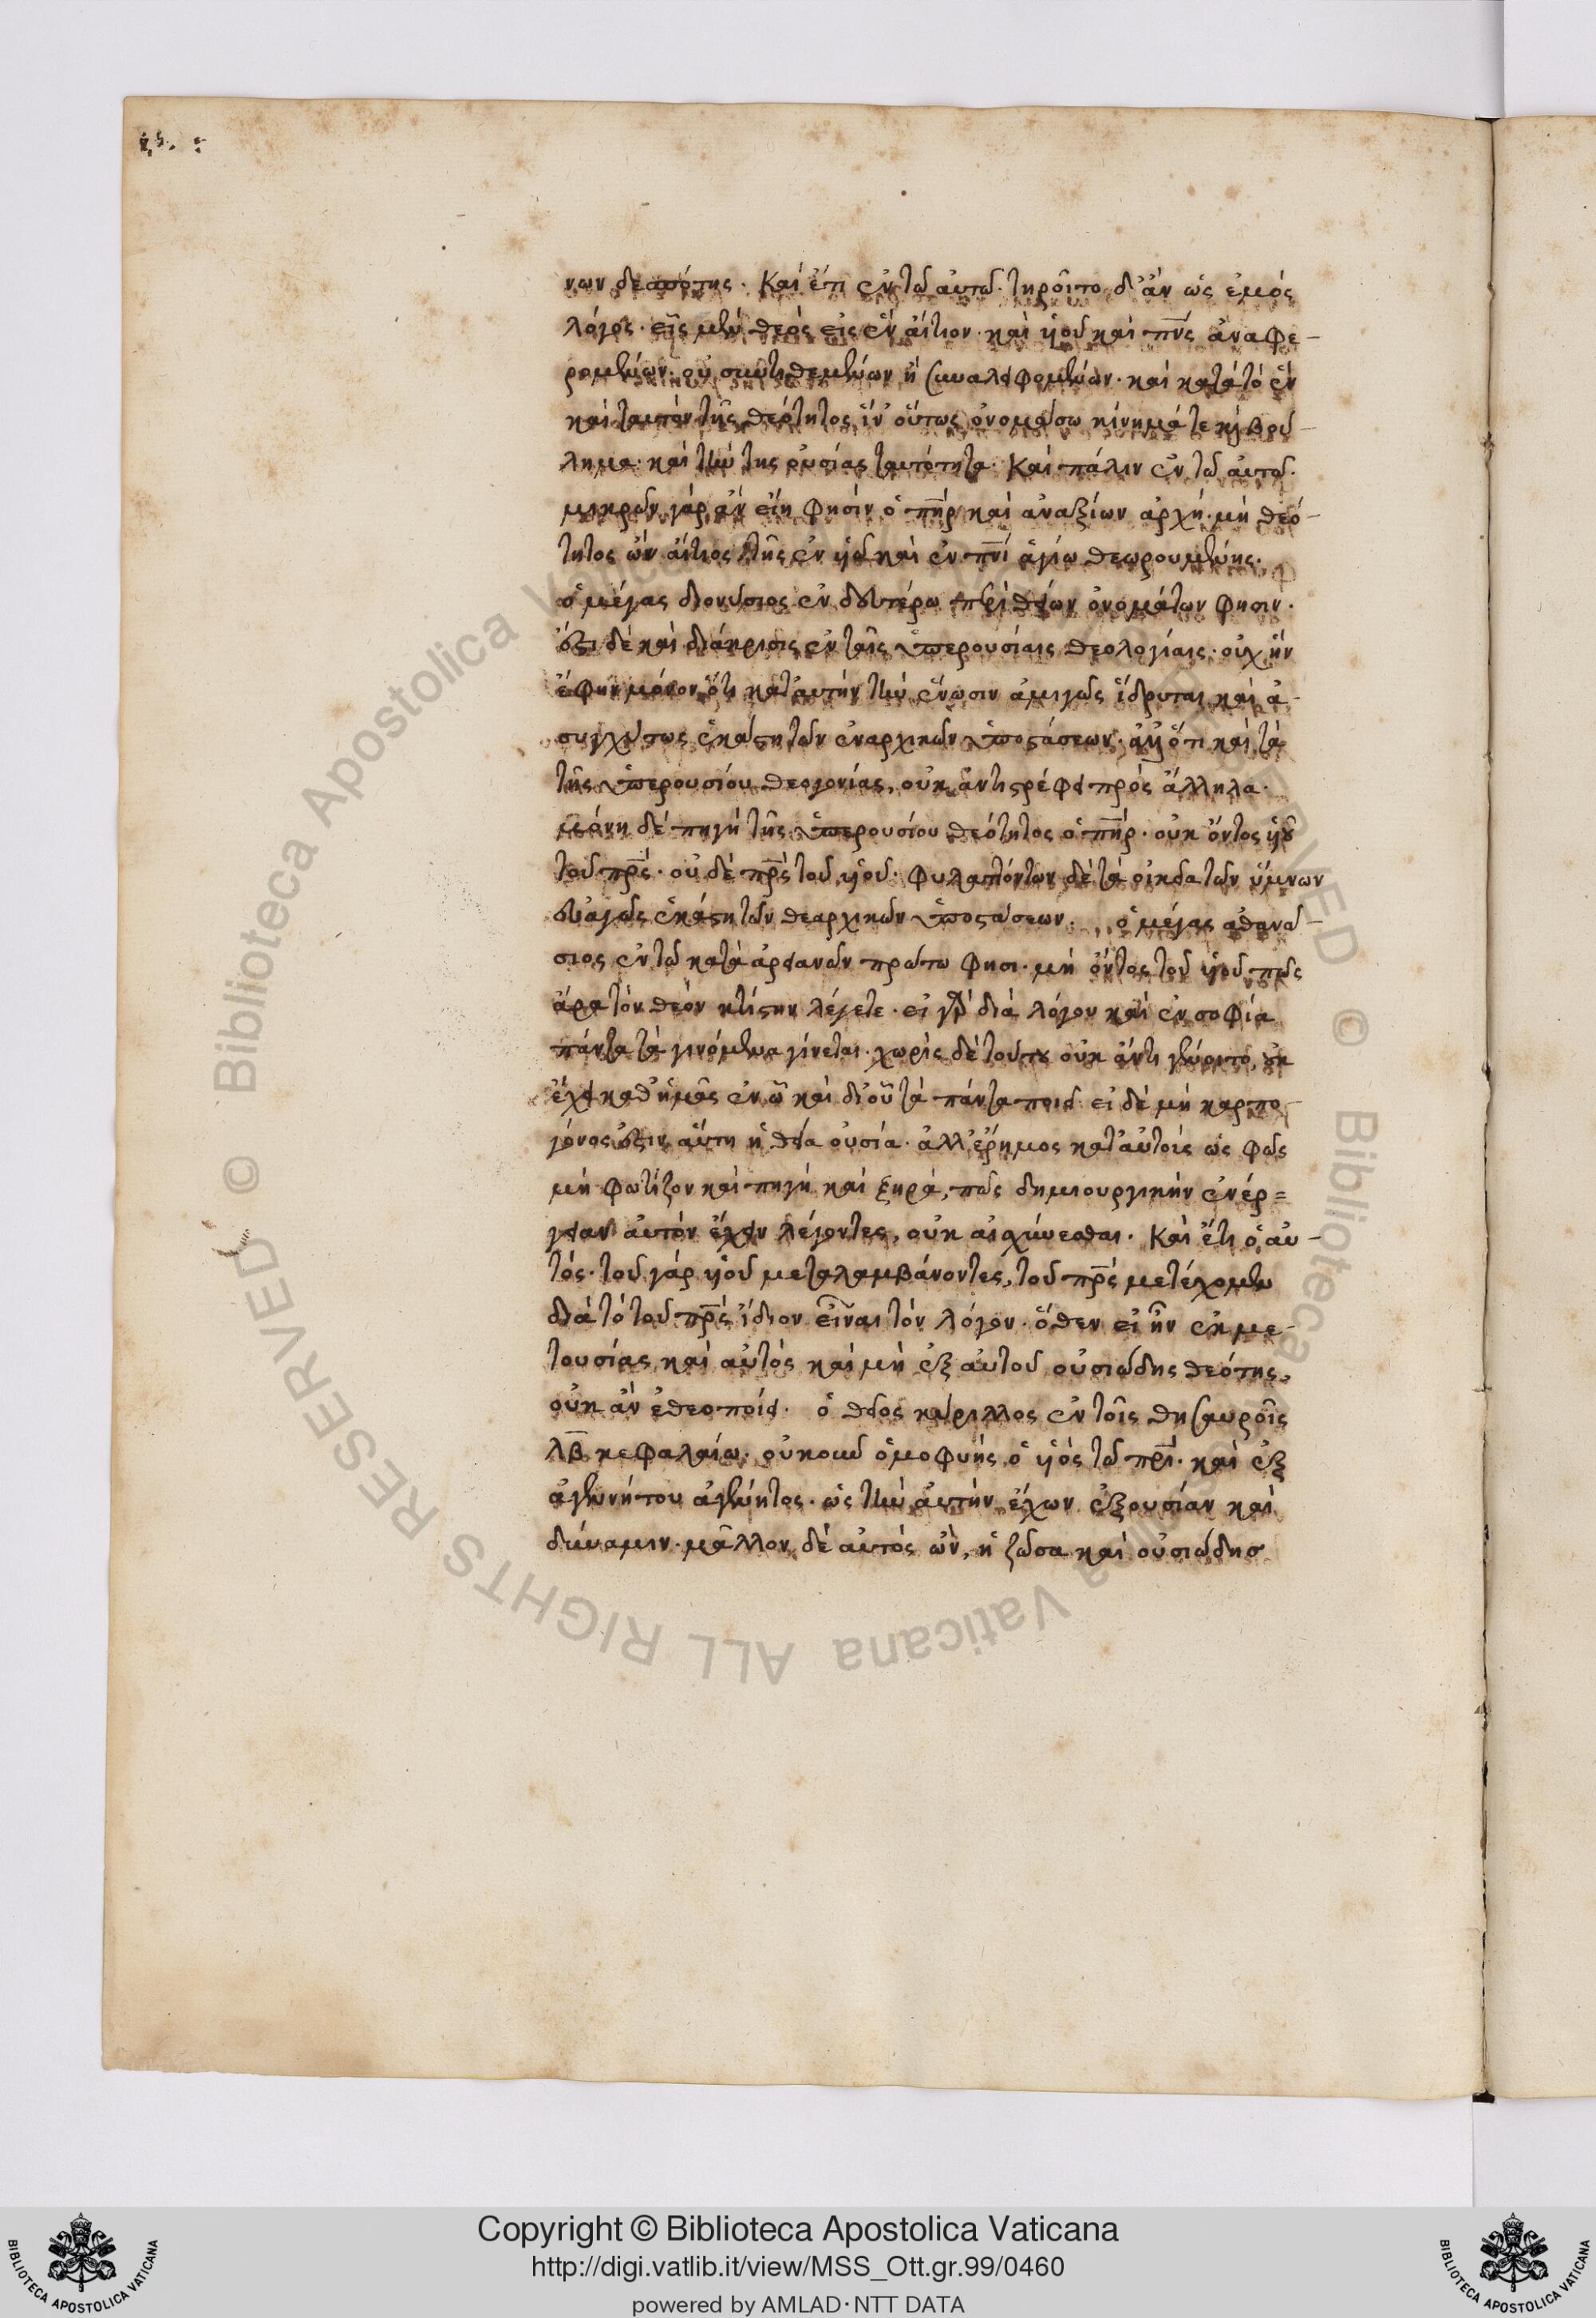 νων δεσπότης. Καὶ ἔτι ἐν τῶ αὐτῶ. τηροῖτο δ' ἂν ὡς ἐμὸς
λόγος. εἷς μὲν θεὸς εἰς ἓν αἴτιον. καὶ υἱοῦ καὶ πν̅ς ἀναφε-
ρομένων. οὐ συντιθεμένων ἢ συναλειφομένων. καὶ κατὰ τὸ ἓν
καὶ ταυτὸν τῆς θεότητος ἵν' οὕτως ὀνομάσω κίνημά τε κ̀ βού-
λημα. καὶ τὴν της οὐσίας ταυτότητα. Καὶ πάλιν ἐν τῶ αὐτῶ.
μικρῶν γὰρ ἂν εἴη φησὶν ὁ πη̅ρ καὶ ἀναξίων ἀρχή. μὴ θεό-
τητος ὢν αἴτιος τῆς ἐν υἱῶ καὶ ἐν πν̅ι ἁγίω θεωρουμένης.
ὁ μέγας διονύσιος ἐν δευτέρω περὶ θείων ὀνομάτων φησιν.
ἔστι δὲ καὶ διάκρισις ἐν ταῖς ὑπερουσίαις θεολογίαις. οὐχ ἣν
ἔφην μόνον ὅτι κατ' αυτὴν τὴν ἕνωσιν ἀμιγῶς ἵδρυται καὶ ἀ-
συγχύτως ἑκάστη τῶν ἐναρχικῶν ὑποστάσεων. ἀλλ' ὅτι καὶ τὰ
τῆς ὑπερουσίου θεογονίας, οὐκ ἀντιστρέφει πρὸς ἄλληλα.
μόνη δὲ πηγὴ τῆς ὑπερουσίου θεότητος ὁ πη̅ρ. οὐκ ὄντος υἱοῦ
τοῦ πρ̅ς. οὐδὲ πρ̅ς τοῦ υἱοῦ. φυλαττόντων δὲ τὰ οἰκεῖα τῶν ὕμνων
εὐαγῶς ἑκάστη τῶν θεαρχικῶν ὑποστάσεων. ὁ μέγας ἀθανά-
σιος ἐν τῶ κατὰ ἀρειανῶν πρώτω φησι. μὴ ὄντος τοῦ υἱοῦ πῶς
ἄρα τὸν θεὸν κτίστην λέγετε. εἰ γὰρ διὰ λόγου καὶ ἐν σοφία
πάντα τὰ γινόμενα γίνεται. χωρὶς δὲ τούτου οὐκ ἄν τι γένοιτο, οὐκ
ἔχει καθ' ἡμᾶς ἐν ὧ καὶ δι' οὗ τὰ πάντα ποιεῖ εἰ δὲ μὴ καρπο-
γόνος ἐστιν αὕτη ἡ θεία οὐσία. ἀλλ' ἔρημος κατ' αὐτοὺς ὡς φῶς
μὴ φωτίζον καὶ πηγὴ καὶ ξηρά, πῶς δημιουργικὴν ἐνέρ=
γειαν αὐτὸν ἔχειν λέγοντες, οὐκ αἰσχύνεσθαι. Καὶ ἔτι ὁ αὐ-
τός. τοῦ γὰρ υἱοῦ μεταλαμβάνοντες, τοῦ πρ̅ς μετέχομεν
διὰ τὸ τοῦ πρ̅ς ἴδιον εἶναι τὸν λόγον. ὅθεν εἰ ἦν ἐκ με-
τουσίας καὶ αὐτὸς καὶ μὴ ἐξ αὐτοῦ οὐσιώδης θεότης,
οὐκ ἂν ἐθεοποίει. ὁ θεῖος κύριλλος ἐν τοῖς θησαυροῖς
λβ̅ κεφαλαίω. οὐκοῦν ὁμοφυὴς ὁ υἱὸς τῶ πρ̅ι. καὶ ἐξ
ἀγεννήτου ἀγέννητος. ὡς τὴν αὐτὴν ἔχων ἐξουσίαν καὶ
δύναμιν. μᾶλλον δὲ αὐτὸς ὢν, ἡ ζῶσα καὶ οὐσιώδησ
Copyright © Biblioteca Apostolica Vaticana
http://digi.vatlib.it/view/MSS_Ott.gr.99/0460
powered by AMLAD·NTT DATA
© Biblioteca Apostolica Vaticana ALL RIGHTS RESERVED
BIBLIOTECA APOSTOLICA VATICANA
BIBLIOTECA APOSTOLICA VATICANA